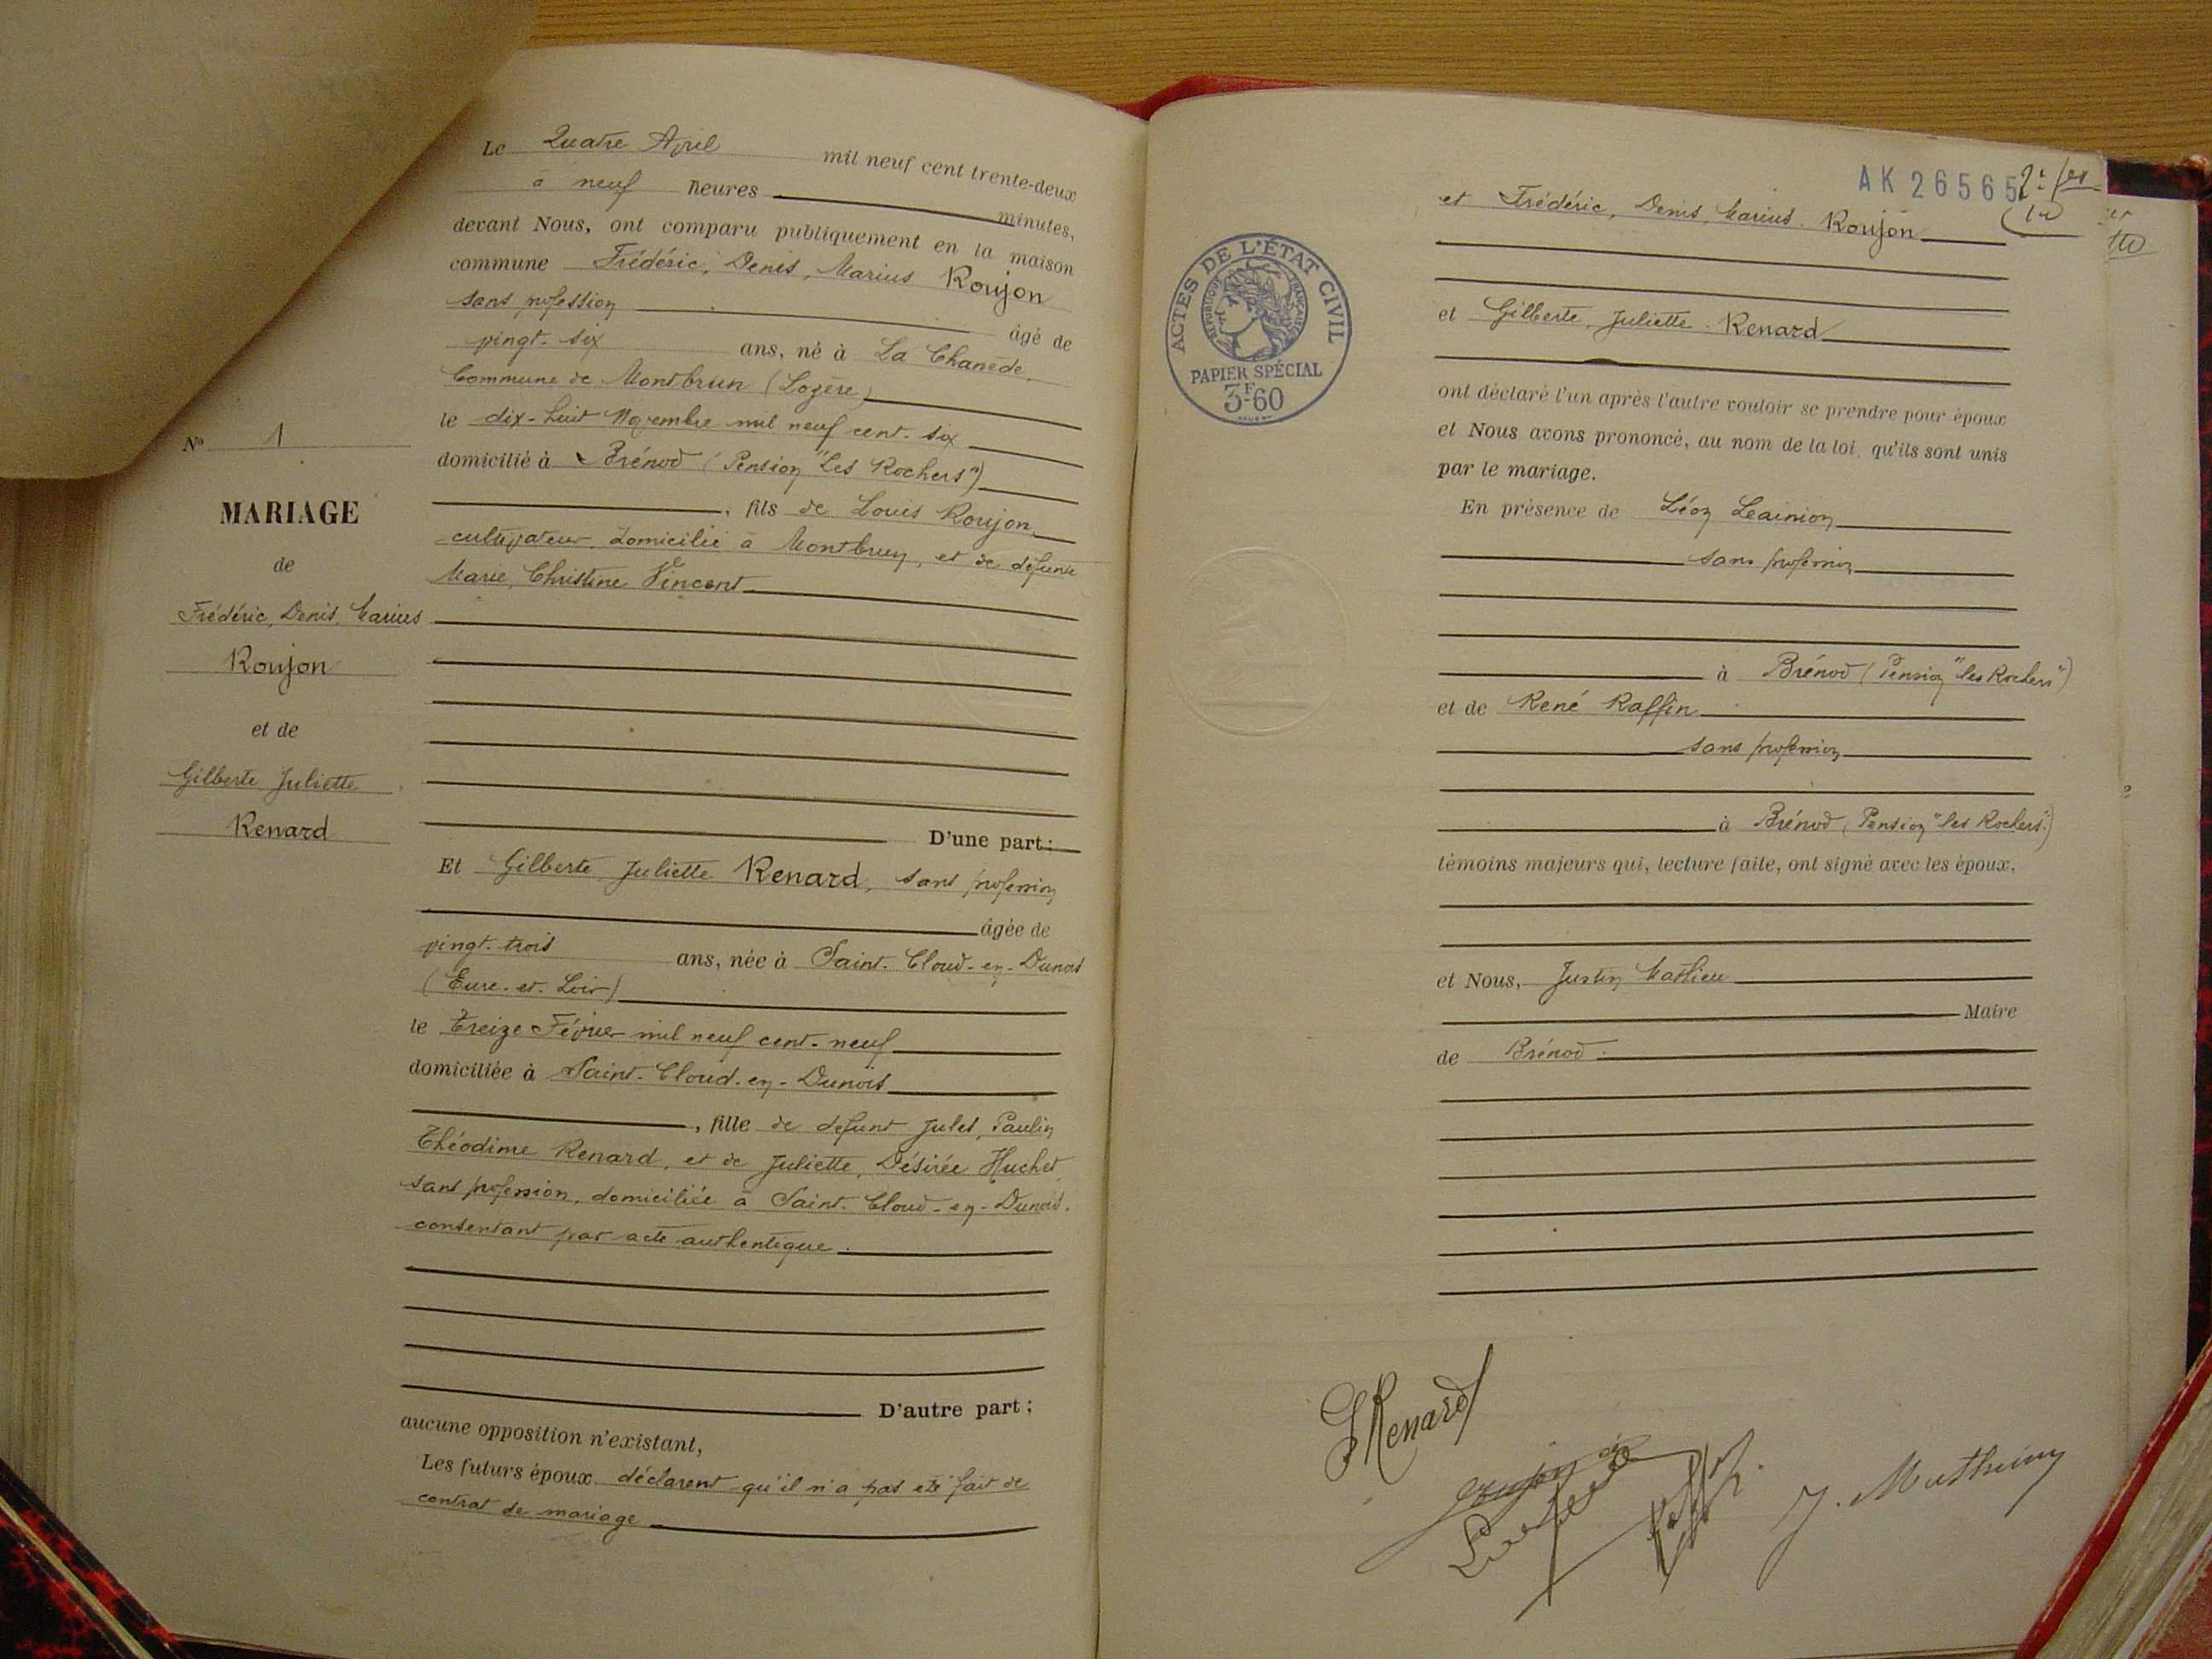 Le Quatre Avril mil neuf cent trente-deux
à neuf heures minutes,
devant Nous, ont comparu publiquement en la maison
commune Frédéric, Denis, Marius Roujon
sans profession âgé de
vingt-six ans, né à La Chanède,
Commune de Montbrun (Lozère)
le dix-huit Novembre mil neuf cent-six
domicilié à Brénod (Pension "Les Rochers")
, fils de Louis Roujon,
cultivateur, domicilié à Montbrun, et de défunte
Marie, Christine Vincent
D'une part;
Et Gilberte, Juliette Renard, sans profession
âgée de
vingt-trois ans, née à Saint-Cloud-en-Dunois
(Eure-et-Loir)
le treize Février mil neuf cent-neuf
domiciliée à Saint-Cloud-en-Dunois
, fille de défunt Jules, Paulin
Théodime Renard, et de Juliette, Désirée Huchet,
sans profession, domiciliée à Saint-Cloud-en-Dunois,
consentant par acte authentique.
D'autre part;
aucune opposition n'existant,
Les futurs époux déclarent qu'il n'a pas été fait de
contrat de mariage
No 1
MARIAGE
de
Frédéric, Denis, Marius
Roujon
et de
Gilberte Juliette
Renard
AK 26565
et Frédéric, Denis, Marius. Roujon
et Gilberte, Juliette. Renard
ont déclaré l'un après l'autre vouloir se prendre pour époux
et Nous avons prononcé, au nom de la loi, qu'ils sont unis
par le mariage.
En présence de Léon
sans profession
à Brénod (Pension "les Rochers")
et de René Raffin
sans profession
à Brénod (Pension "les Rochers")
témoins majeurs qui, lecture faite, ont signé avec les époux,
et Nous, Justin Mathieu
Maire
de Brénod.
ACTES DE L'ÉTAT CIVIL
RÉPUBLIQUE FRANÇAISE
PAPIER SPÉCIAL
3F60
GRenard